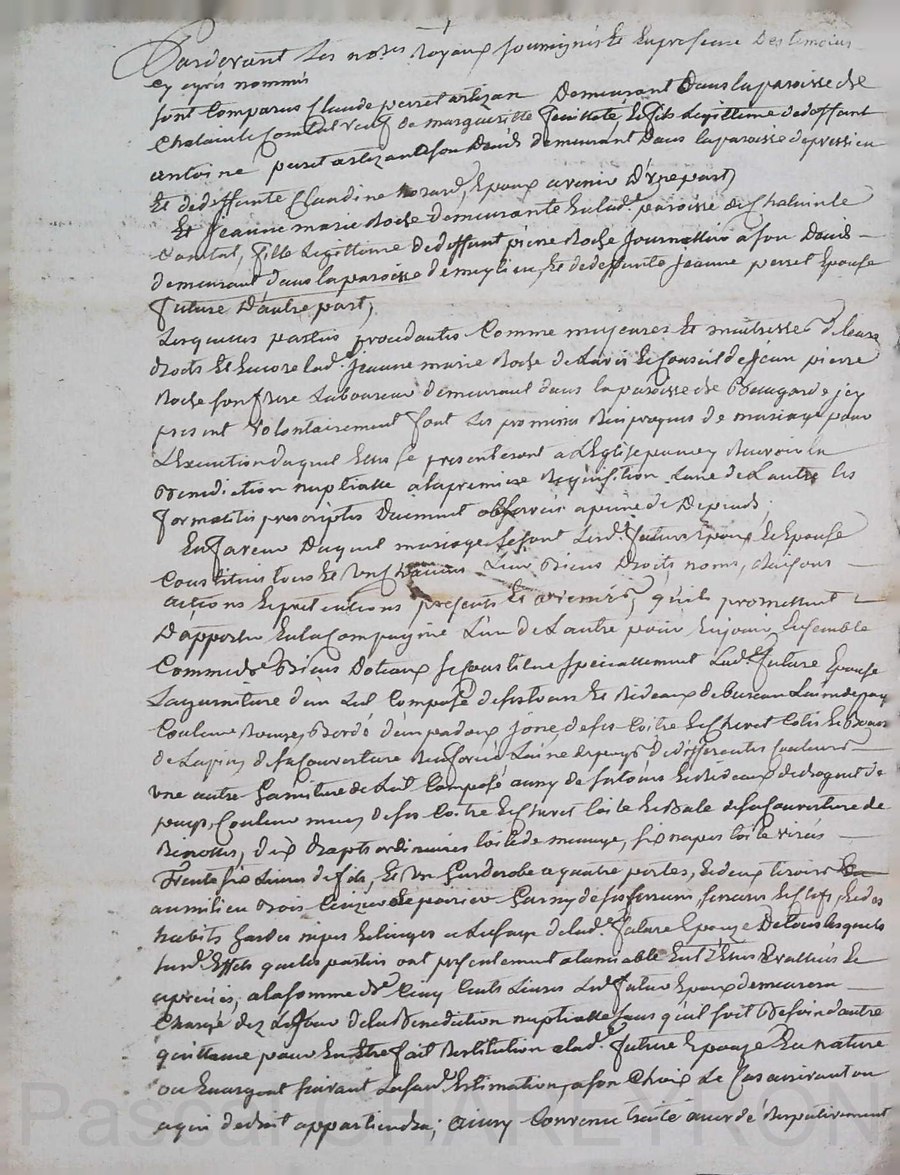 Pardevant Les no.res Royaux soussignés Et En presence Des temoins
cy après nommés
sont Comparus Claude perret artizan Demeurant Dans la paroisse de
Chalain le Comtal veuf de margueritte Et fils Legittime de deffunt
antoine perret artizan a son Decès demeurant Dans la paroisse de
Et de deffunte Claudine Epoux avenir D'une part,
Et Jeanne marie Roche demeurante En lad.e paroisse de Chalain le
Comtal, fille Legittime de deffunt pierre Roche Journallier a son Decès
demeurant dans la paroisse de Et de deffunte Jeanne perret Epouse
future D'autre part,
Lesquelles parties procedantes Comme majeures Et maitresses de leurs
droits Et Encore lad.e Jeanne marie Roche de L'avis Et Conseil de Jean pierre
Roche son frere Laboureur demeurant dans la paroisse de icy
present volontairement font Les promesses Reciproques de mariage pour
L'Execution duquel Elles se presenteront a L'Eglise pour y Recevoir la
Benediction nuptialle a la premiere Requisition L'une de L'autre les
formalités prescriptes Duement observées a peine de Depends,
En faveur Duquel mariage se sont Lesd.ts futurs Epoux Et Epouse
Constitués tous Et un Chacuns Leurs Biens Droits, noms, Raisons
actions Et pretentions presents Et avenirs, qu'ils promettent
D'apporter En la Compagnie L'un de L'autre pour En jouir Ensemble
Comme de Biens Dotaux se Constitue specialement Lad.e future Epouse
La garniture d'un Lit Composé de ses tours Et Rideaux de Laine de pay
Couleur Rouge, Bordé d'un padoux jone de sa Coitre Et Chevet
de sa Couverture Laine de pays de differentes Couleurs
une autre Garniture de Lit Composé aussy de ses tours Et Rideaux de droguet de
pays, Couleur de sa Coitre Et Chevet toile Et Bale de sa Couverture de
dix draps ordinaires toile de menage, six napes toile
Trente six Livres de fil, Et un Garderobe a quatre portes, Et deux tiroirs
au milieu Bois Cerizier Et poirier Garny de ses ferrures serrures Et Clefs, Et des
habits hardes nipes Et Linges a L'usage de lad.e future Epouze De tous lesquels
susd.ts Effets que les parties ont presentement a l'amiable Entr'Elles Evallués Et
apreciés, a la somme de Cinq Cents Livres Led.t futur Epoux demeurera
Chargé dez Le Jour de la Benediction nuptialle sans qu'il soit Besoin d'autre
quittance pour En Etre fait Restitution a lad.e future Epouze En nature
ou En argent suivant La susd.e Estimation, a son Choix Le Cas arrivant ou
a qui de droit appartiendra; ainsy Convenu traité accordé Respectivement
Pascal CHAREYRON